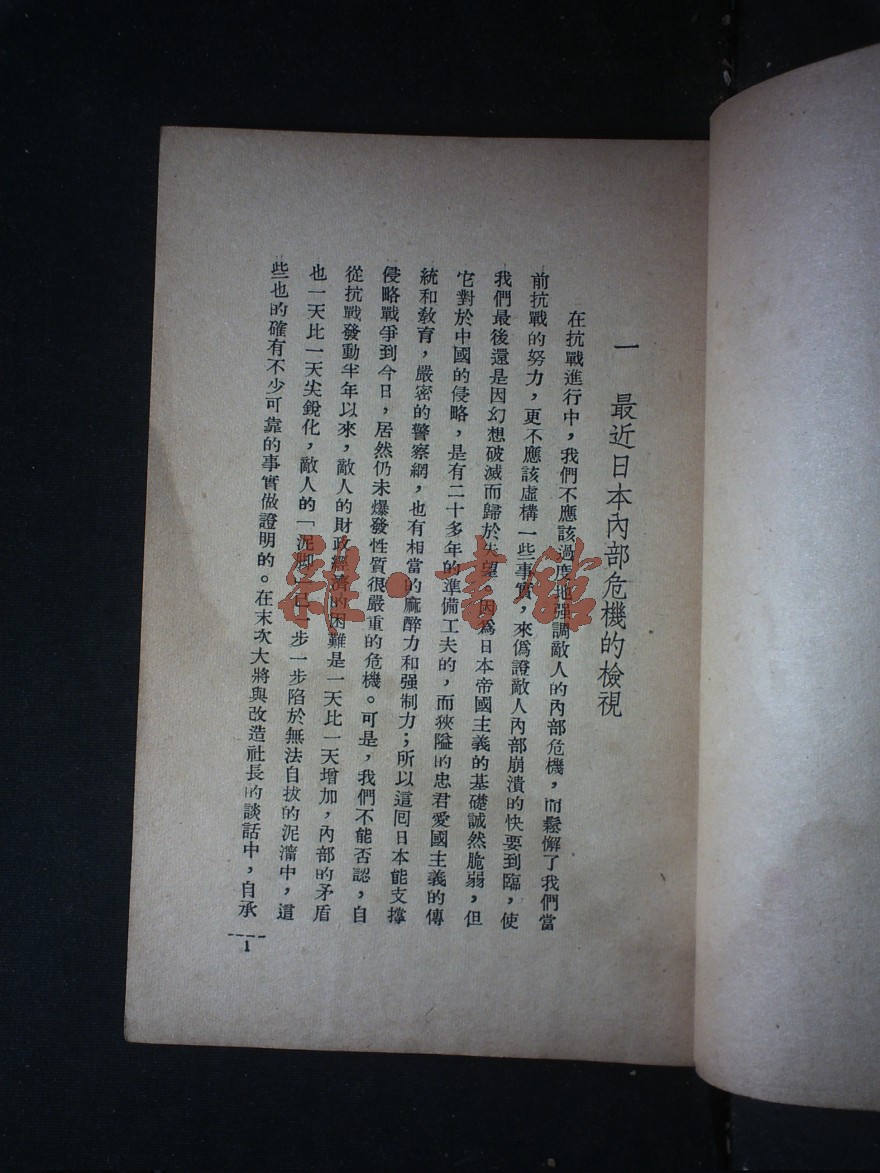 一 最近日本內部危機的檢視
在抗戰進行中，我們不應該過度地强調敵人的內部危機，而鬆懈了我們當
前抗戰的努力，更不應該虛構一些事實，來僞證敵人內部崩潰的快要到臨，使
我們最後還是因幻想破滅而歸於失望，因爲日本帝國主義的基礎誠然脆弱，但
它對於中國的侵略，是有二十多年的準備工夫的，而狹隘的忠君愛國主義的傳
統和敎育，嚴密的警察網，也有相當的麻醉力和强制力；所以這囘日本能支撐
侵略戰爭到今日，居然仍未爆發性質很嚴重的危機。可是，我們不能否認，自
從抗戰發動半年以來，敵人的財政經濟的困難是一天比一天增加，內部的矛盾
也一天比一天尖銳化，敵人的「泥脚」已一步一步陷於無法自拔的泥濘中，這
些也的確有不少可靠的事實做證明的。在末次大將與改造社長的談話中，自承
1
雜·書館